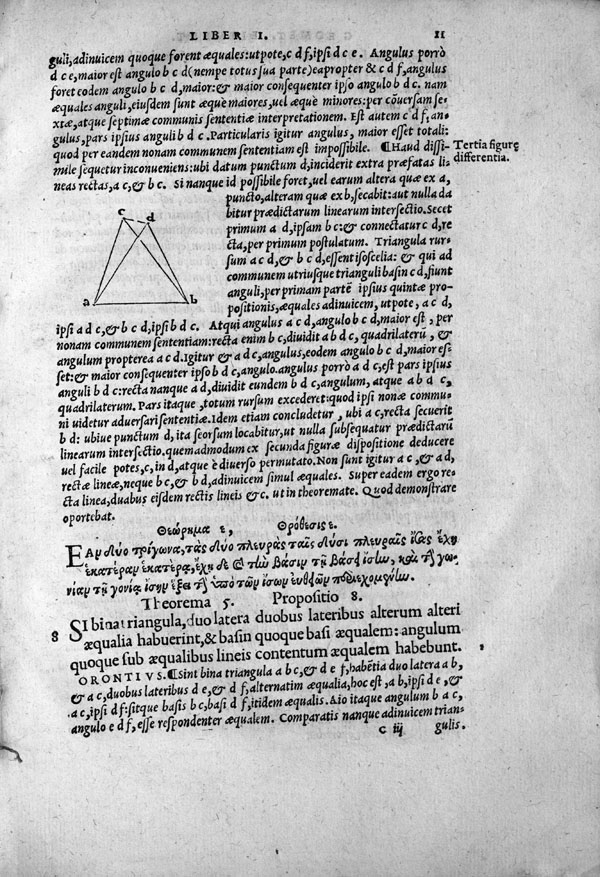 LIBER I. 11
guli, adinuicem quoque forent æquales: utpote, c d f, ipsi d c e. Angulus porrò
d c e, maior est angulo b c d (nempe totus sua parte) eapropter & c d f, angulus
foret eodem angulo b c d, maior: & maior consequenter ipso angulo b d c. nam
æquales anguli, eiusdem sunt æquè maiores, uel æquè minores: per cõuersam se-
xtæ, atque septimæ communis sententiæ interpretationem. Est autem c d f, an-
gulus, pars ipsius anguli b d c. Particularis igitur angulus, maior esset totali:
quod per eandem nonam communem sententiam est impossibile. ¶Haud dissi-
Tertia figuræ
differentia.
mile sequetur inconueniens: ubi datum punctum d, inciderit extra præfatas li-
neas rectas, a c, & b c. Si nanque id possibile foret, uel earum altera quæ ex a,
puncto, alteram quæ ex b, secabit: aut nulla da
bitur prædictarum linearum intersectio. Secet
primum a d, ipsam b c: & connectatur c d, re-
cta, per primum postulatum. Triangula rur-
sum a c d, & b c d, essent isoscelia: & qui ad
communem utriusque trianguli basin c d, fiunt
anguli, per primam partẽ ipsius quintæ pro-
positionis, æquales adinuicem, utpote, a c d,
c d
a b
ipsi a d c, & b c d, ipsi b d c. Atqui angulus a c d, angulo b c d, maior est, per
nonam communem sententiam: recta enim b c, diuidit a b d c, quadrilaterũ, &
angulum propterea a c d. Igitur & a d c, angulus, eodem angulo b c d, maior es-
set: & maior consequenter ipso b d c, angulo. angulus porrò a d c, est pars ipsius
anguli b d c: recta nanque a d, diuidit eundem b d c, angulum, atque a b d c,
quadrilaterum. Pars itaque, totum rursum excederet: quod ipsi nonæ commu-
ni uidetur aduersari sententiæ. Idem etiam concludetur, ubi a c, recta secuerit
b d: ubiue punctum d, ita seorsum locabitur, ut nulla subsequatur prædictarũ
linearum intersectio. quemadmodum ex secunda figuræ dispositione deducere
uel facile potes, c, in d, atque è diuerso permutato. Non sunt igitur a c, & a d,
rectæ lineæ, neque b c, & b d, adinuicem simul æquales. Super eadem ergo re-
cta linea, duabus eisdem rectis lineis &c. ut in theoremate. Quod demonstrare
oportebat.
Θεώρημα ε, Πρόθεσις
Εὰν δύο τρίγωνα, τὰς δύο πλευρὰς ταῖς δυσὶ πλευραῖς ἴσας ἔχῃ
ἑκατέραν ἑκατέρᾳ, ἔχῃ δὲ τὴν βάσιν τῇ βάσει ἴσην, καὶ τὴν γω-
νίαν τῇ γωνίᾳ ἴσην ἕξει τὴν ὑπὸ τῶν ἴσων εὐθειῶν περιεχομένην.
Theorema 5. Propositio 8.
8 SI bina triangula, duo latera duobus lateribus alterum alteri
æqualia habuerint, & basin quoque basi æqualem: angulum
quoque sub æqualibus lineis contentum æqualem habebunt.
ORONTIVS. ¶Sint bina triangula a b c, & d e f, habẽtia duo latera a b,
& a c, duobus lateribus d e, & d f, alternatim æqualia, hoc est, a b, ipsi d e, &
a c, ipsi d f: sitque basis b c, basi d f, itidem æqualis. Aio itaque angulum b a c,
angulo e d f, esse respondenter æqualem. Comparatis nanque adinuicem trian-
c iij gulis.